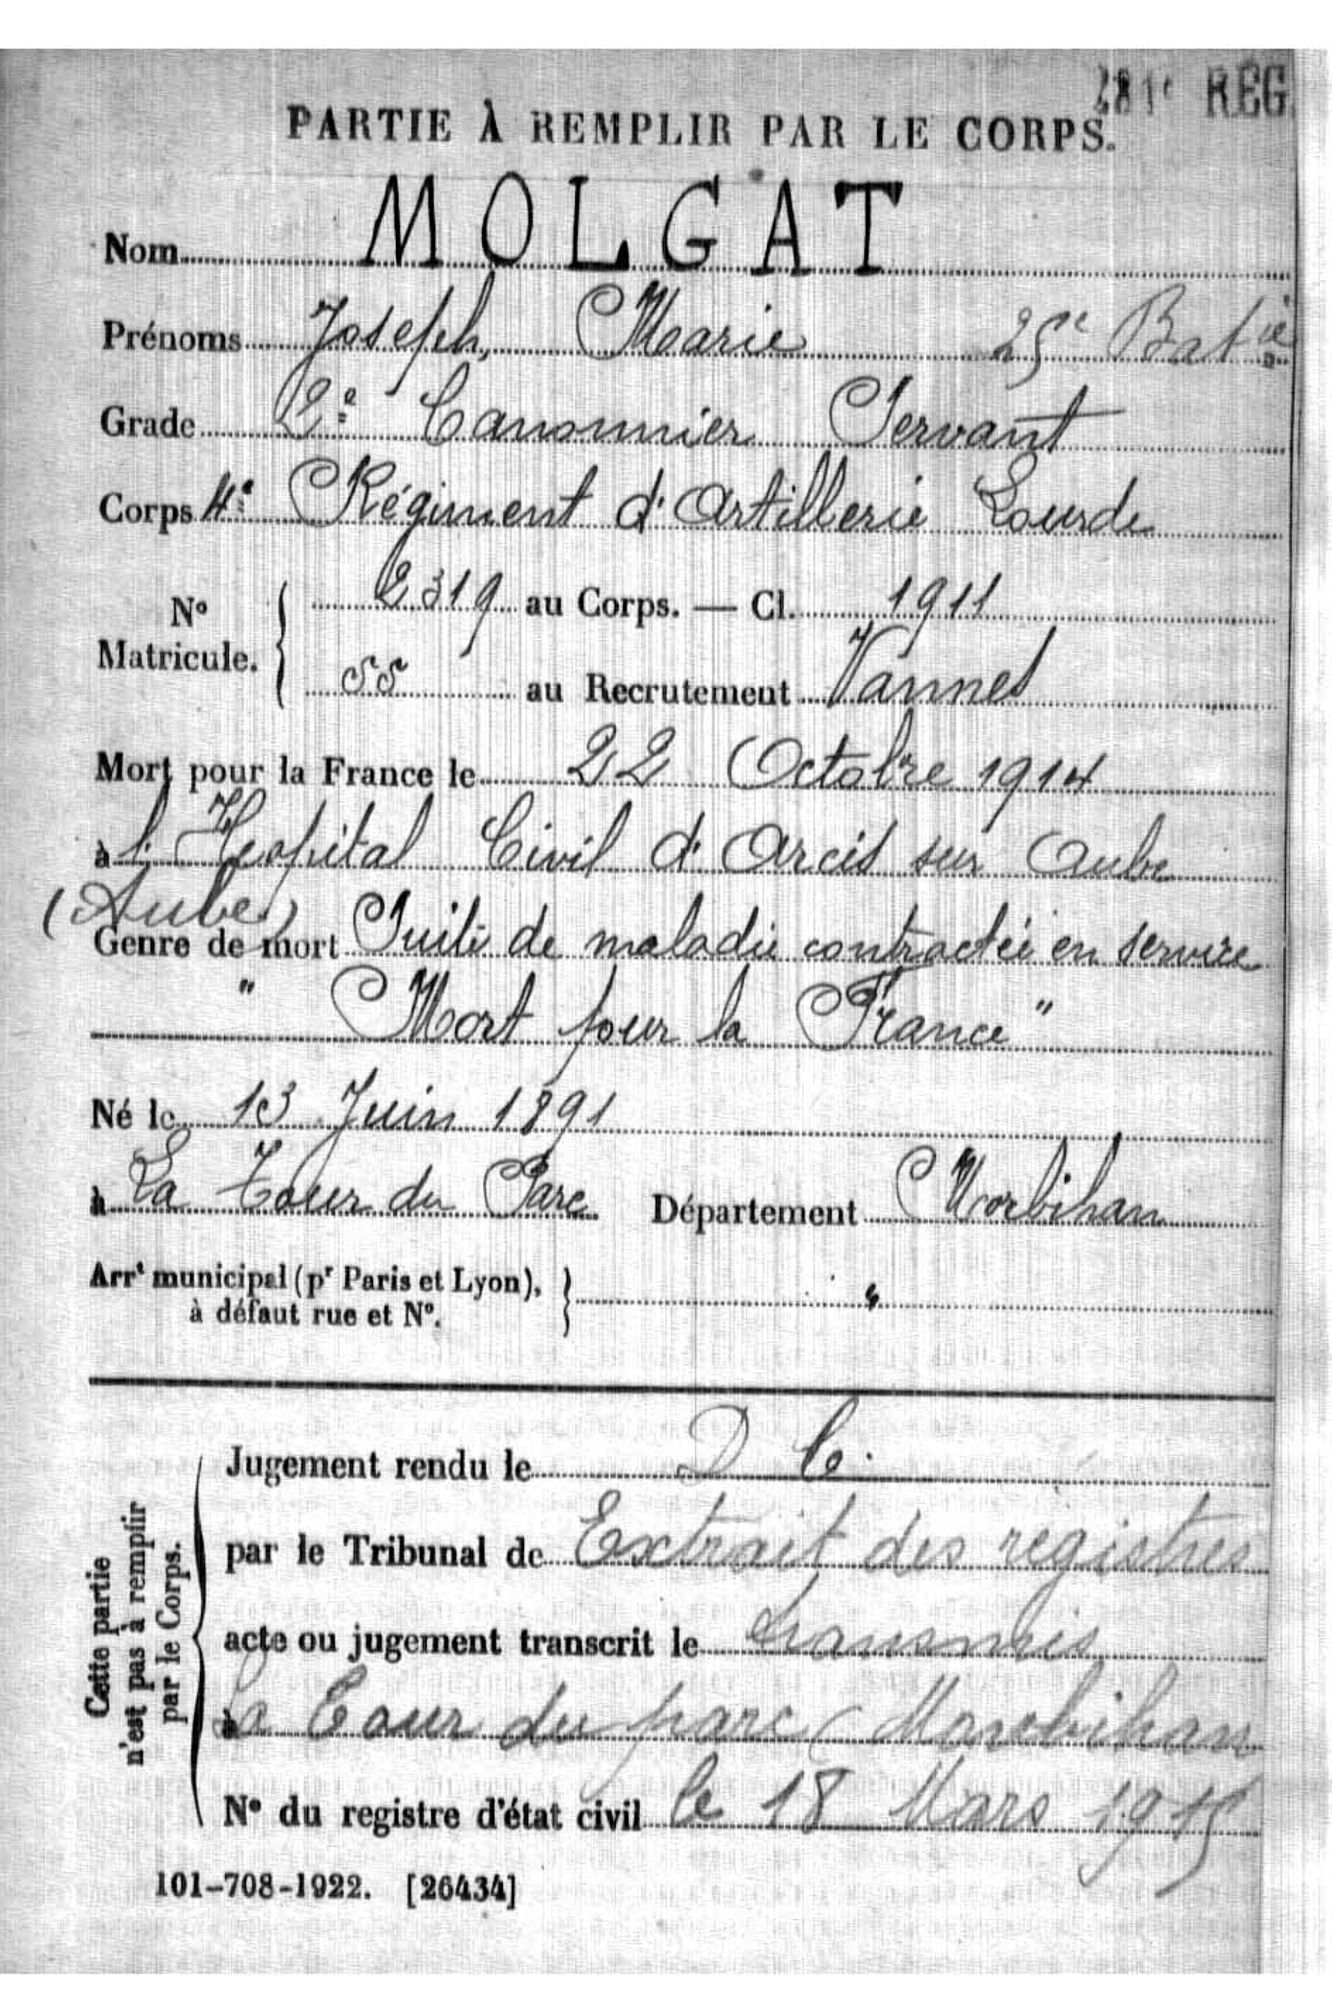 281e REG.
PARTIE À REMPLIR PAR LE CORPS.
Nom MOLGAT
Prénoms Joseph, Marie 25e Batie
Grade 2e Canonnier Servant
Corps 4e Régiment d'Artillerie Lourde
N° Matricule. { 2319 au Corps. — Cl. 1911
55 au Recrutement Vannes
Mort pour la France le 22 Octobre 1914
à l'Hopital Civil d'Arcis sur Aube
(Aube)
Genre de mort Suite de maladie contractée en service
" Mort pour la France "
Né le 13 Juin 1891
à La Tour du Parc Département Morbihan
Arrt municipal (pr Paris et Lyon), } "
à défaut rue et N°.
Cette partie
n'est pas à remplir
par le Corps.
Jugement rendu le D C.
par le Tribunal de Extrait des registres
acte ou jugement transcrit le transmis
à La Tour du parc (Morbihan
N° du registre d'état civil le 18 Mars 1915
101-708-1922. [26434]